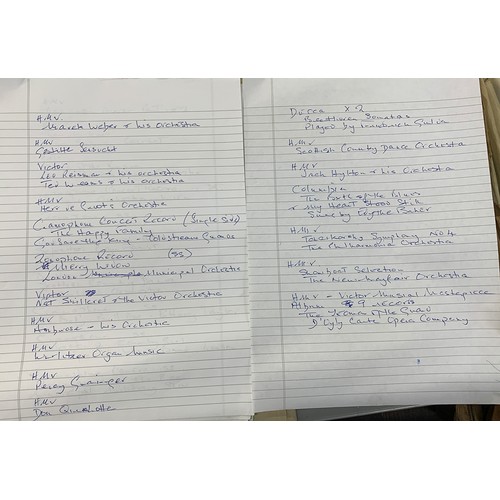 H.M.V.
Marek Weber & his Orchestra
H.M.V
Victor
Leo Reisman & his orchestra
Ted Weems & his orchestra
H.M.V
Orchestra
Gramophone Concert Record (Single Sided)
The Happy
God Save the King - Coldstream Guards
Zonophone Record (SS)
Merry Widow
London Municipal Orchestra
Victor
Nat Shilkret & the Victor Orchestra
H.M.V
Ambrose - his Orchestra
H.M.V
Wurlitzer Organ Music
H.M.V
Percy Grainger
H.M.V
Don Quixote
Decca x 2
Beethoven Sonatas
Played by
H.M.V
Scottish Country Dance Orchestra
H.M.V
Jack Hylton & his Orchestra
Columbia
The Birth of the Blues
& My Heart Stood Still
by Edythe Baker
H.M.V
Tchaikovsky Symphony No 4
The Philharmonia Orchestra
H.M.V
Showboat Selection
The New Mayfair Orchestra
H.M.V - Victor Musical Masterpiece
Album 9 records
The Yeoman of the Guard
D'Oyly Carte Opera Company